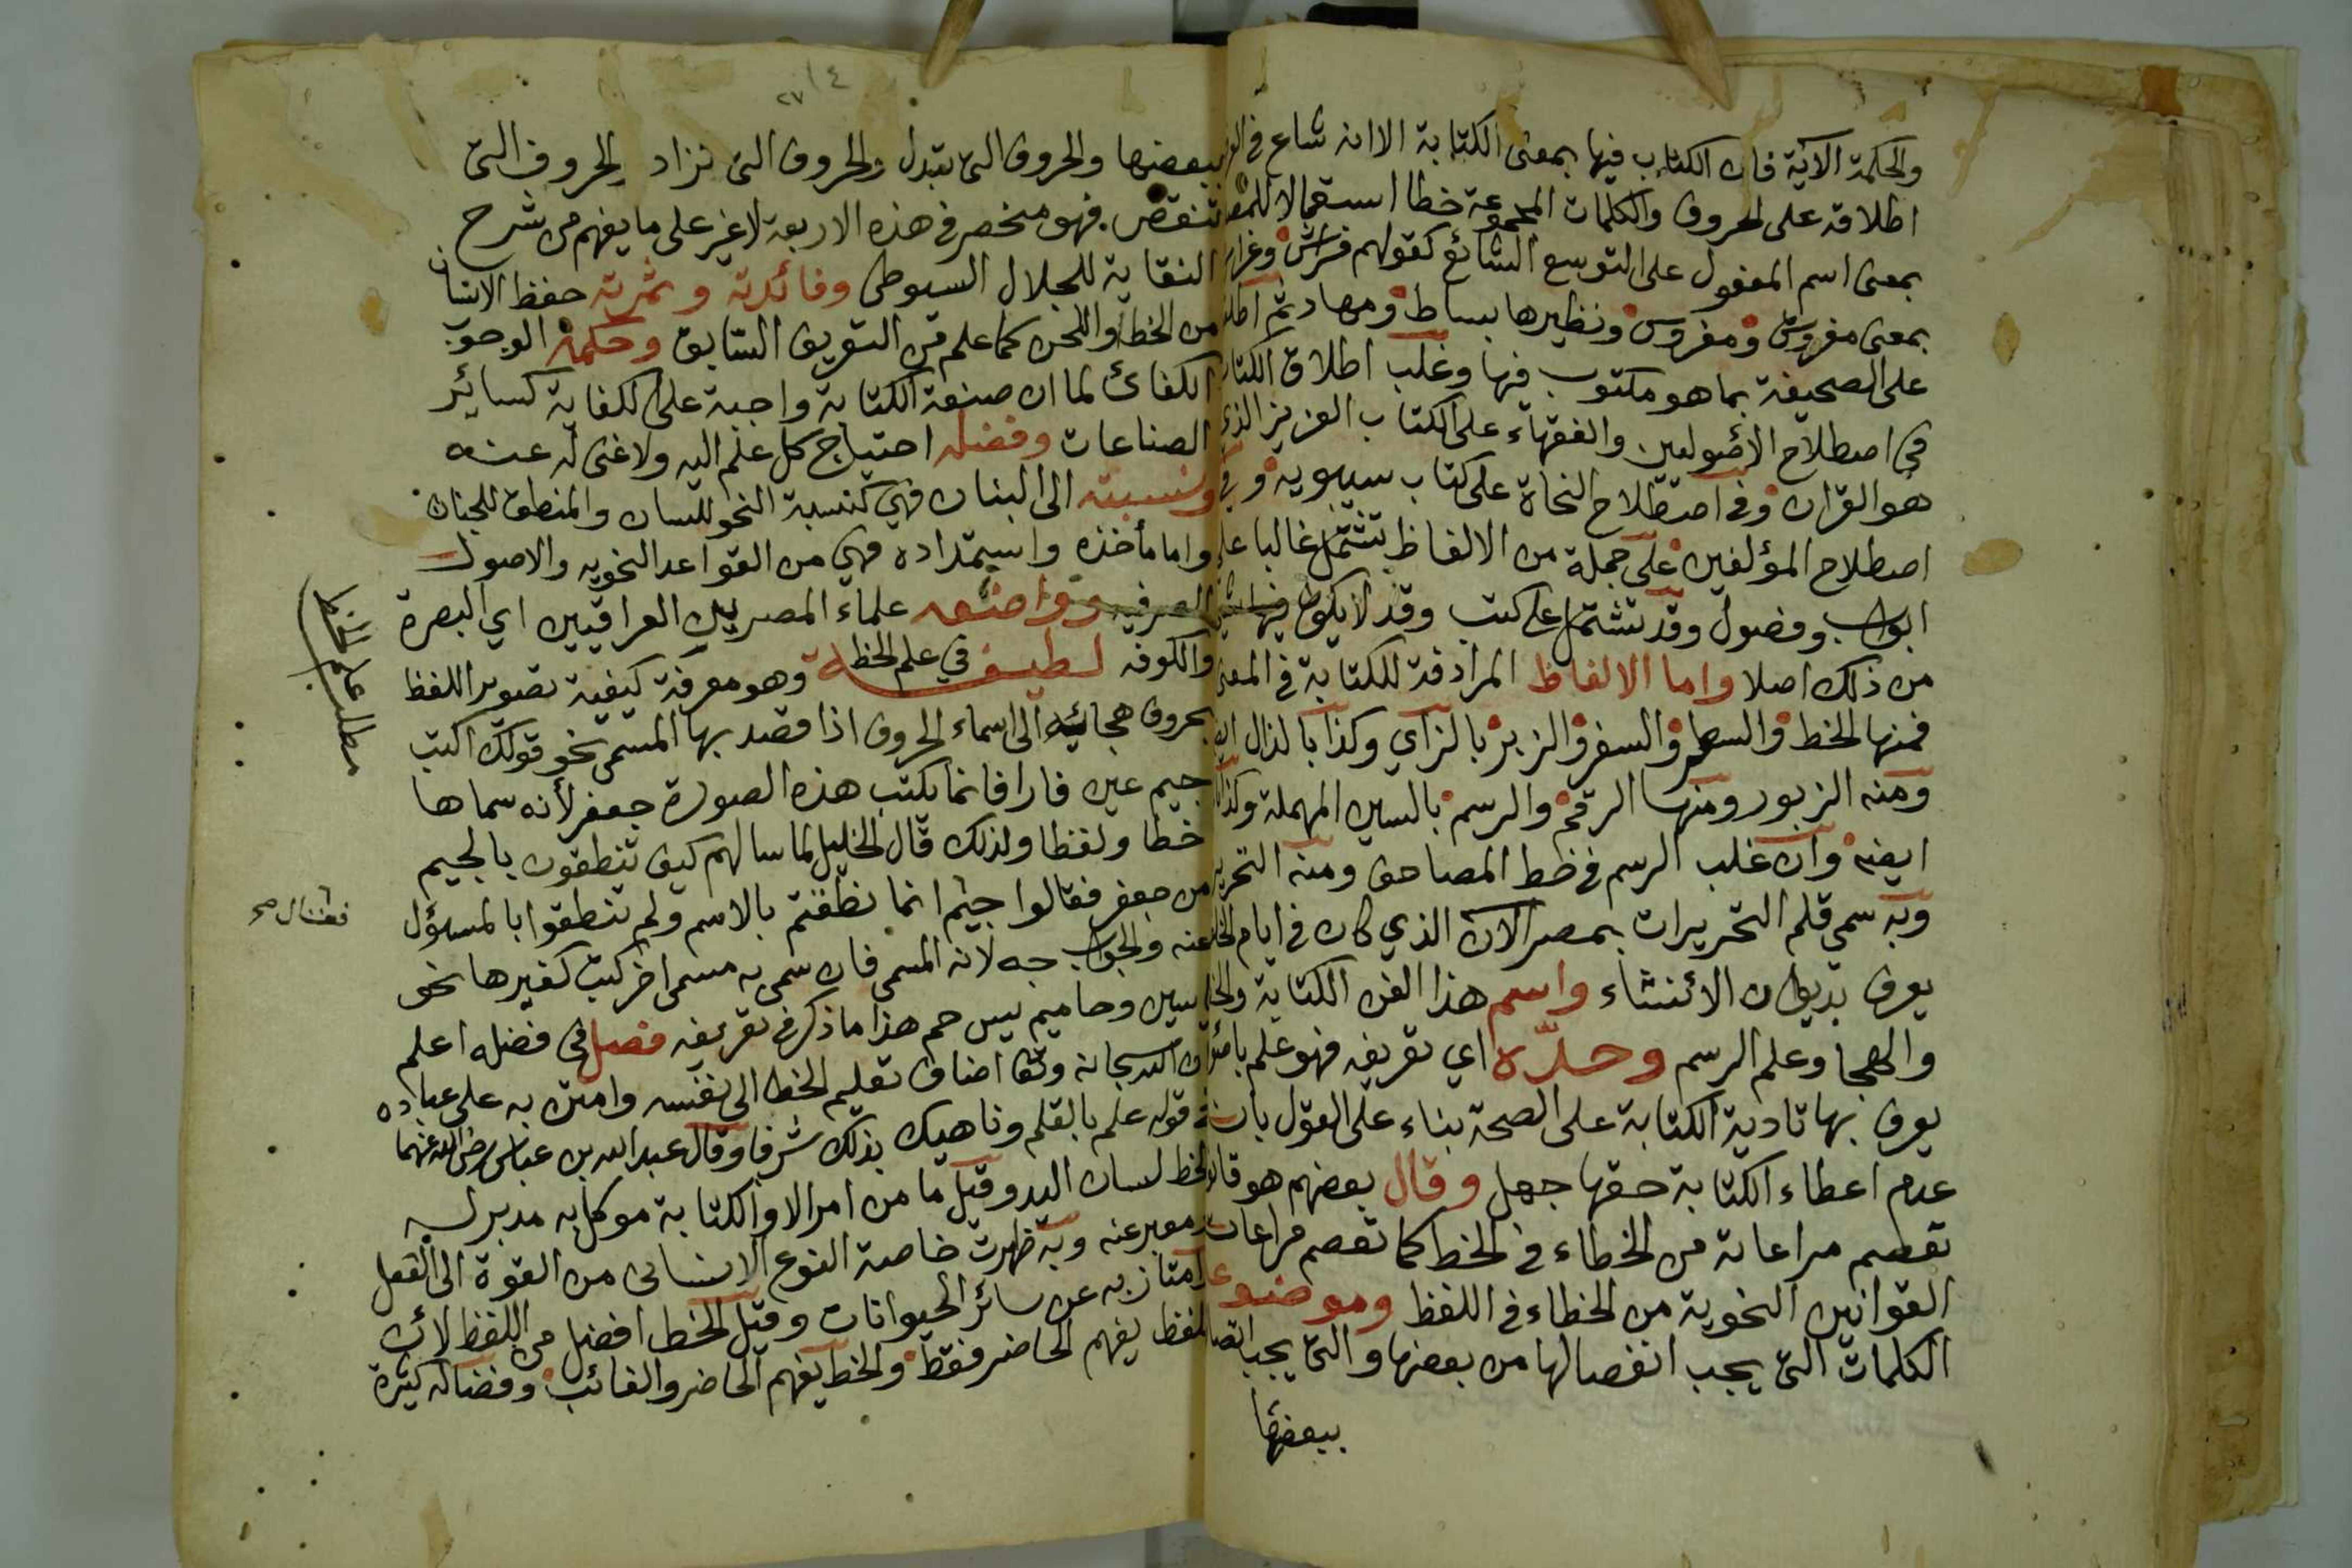 والحكمة الآية فان الكتاب فيها بمعنى الكتابة الا انه شاع في
اطلاقه على الحروف والكلمات المجموعة خطا استعمالا للمصدر
بمعنى اسم المفعول على التوسع الشائع كقولهم فراش وغراس
بمعنى مفروش ومغروس ونظيرها بساط ومهاد ثم اطلق
على الصحيفة بما هو مكتوب فيها وغلب اطلاق الكتاب
في اصطلاح الأصوليين والفقهاء على الكتاب العزيز الذي
هو القران وفي اصطلاح النحاة على كتاب سيبويه وفي
اصطلاح المؤلفين على جملة من الالفاظ تشتمل غالبا على
ابواب وفصول وقد تشتمل على كتب وقد لا يكون فيها شيئ
من ذلك اصلا واما الالفاظ المرادفة للكتابة في المعنى
فمنها الخط والسطر والسفر والزبر بالزاي وكذا بالذال
ومنه الزبور ومنها الرقم والرسم بالسين المهملة وكذا
ايضه وان غلب الرسم في خط المصاحف ومنه التحرير
وبه سمي قلم التحريرات بمصر الآن الذي كان في ايام
يعرف بديوان الائنشاء واسم هذا الفن الكتابة والخط
والهجا وعلم الرسم وحدّه اي تعريفه فهو علم بأصول
يعرف بها تادية الكتابة على الصحة بناء على القول بان
عدم اعطاء الكتابة حقها جهل وقال بعضهم هو قانون
تعصم مراعاته من الخطاء في الخط كما تعصم مراعات
القوانين النحوية من الخطاء في اللفظ وموضوعه
الكلمات التي يجب انفصالها من بعضها والتي يجب اتصالها
ببعضها
٢٧٤
ببعضها والحروف التي تبدل والحروف التي تزاد والحروف التي
تنقص فهو منحصر في هذه الاربعة لا غير على ما يفهم من شرح
النقاية للجلال السيوطي وفائدته وثمرته حفظ الانسان
من الخطأ واللحن كما علم من التعريف السابق وحكمه الوجوب
الكفائ لما ان صنعة الكتابة واجبة على الكفاية كسائر
الصناعات وفضله احتياج كل علم اليه ولا غنى له عنه
ونسبته الى البنان فهي كنسبة النحو للسان والمنطق للجنان
واما مأخذه واستمداده فهي من القواعد النحويه والاصول
الصرفيه وواضعه علماء المصريين العراقيين اي البصرة
والكوفه لطيفة في علم الخط وهو معرفة كيفية تصوير اللفظ
بحروف هجائيه الى اسماء الحروف اذا قصد بها المسمى نحو قولك اكتب
جيم عين فا را فانما يكتب هذه الصورة جعفر لأنه سماها
خطا ولفظا ولذلك قال الخليل لما سالهم كيف تنطقون بالجيم
من جعفر فقالوا جيم انما نطقتم بالاسم ولم تنطقوا بالمسؤل
عنه والجواب جه لانه المسمى فان سمى به مسمى اخر كتب كغيرها نحو
يسين وحاميم يس حم هذا ما ذكر في تعريفه فصل في فضله اعلم
ان الله سبحانه وتعا اضاف تعليم الخط الى نفسه وامتن به على عباده
في قوله علم بالقلم وناهيك بذلك شرفا وقال عبد الله بن عباس رضي الله عنهما
الخط لسان اليد وقيل ما من امر الا والكتابة موكل به مدبر له
ومعبر عنه وبه ظهرت خاصة النوع الانسانى من القوة الى الفعل
وامتاز به عن سائر الحيوانات وقيل الخط افضل من اللفظ لأن
اللفظ يفهم الحاضر فقط والخط يفهم الحاضر والغائب وفضائله كثيرة
مطلب علم الخط